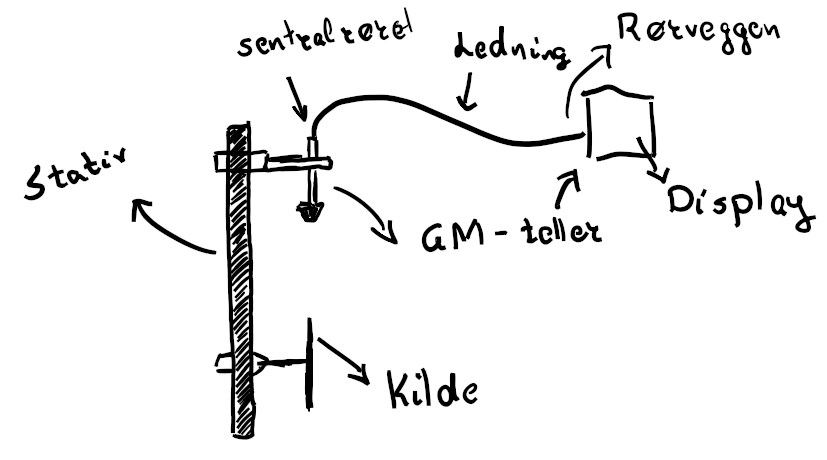 sentralrøret
Ledning
Rørveggen
Stativ
Display
GM-teller
Kilde